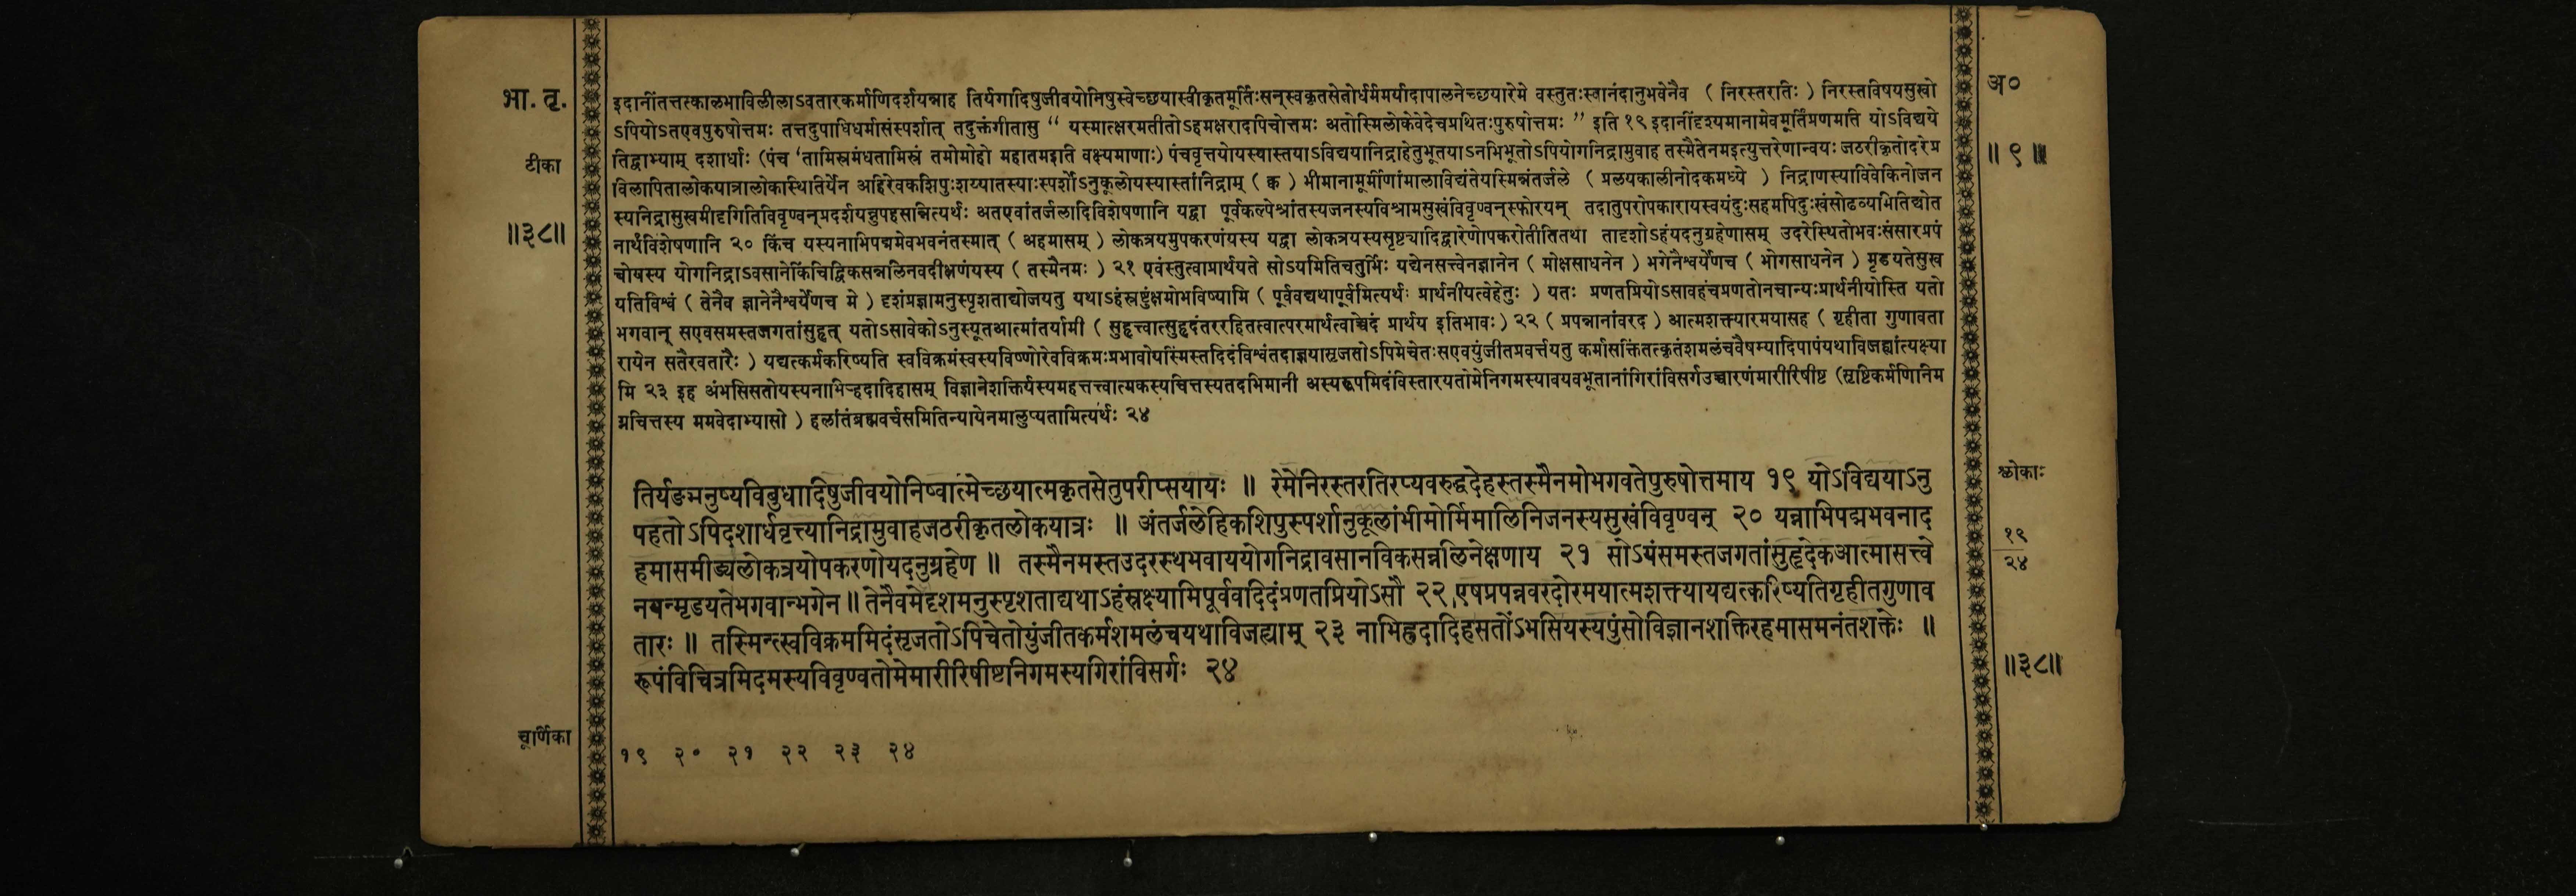 भा. तृ.
टीका
॥३८॥
इदानींतत्तत्कालभाविलीलाऽवतारकर्माणिदर्शयन्नाह तिर्यगादिषुजीवयोनिषुस्वेच्छयास्वीकृतमूर्तिःसन्स्वकृतसेतोर्धर्ममर्यादापालनेच्छयारेमे वस्तुतःस्वानंदानुभवेनैव ( निरस्तरतिः ) निरस्तविषयसुखो
ऽपियोऽतएवपुरुषोत्तमः तत्तदुपाधिधर्मासंस्पर्शात् तदुक्तंगीतासु “ यस्मात्क्षरमतीतोऽहमक्षरादपिचोत्तमः अतोस्मिलोकेवेदेचप्रथितःपुरुषोत्तमः ” इति १९ इदानींदृश्यमानामेवमूर्तिंप्रणमति योऽविद्यये
तिद्वाभ्याम् दशार्धाः (पंच ‘तामिस्रमंधतामिस्रं तमोमोहो महातमइति वक्ष्यमाणाः) पंचवृत्तयोयस्यास्तयाऽविद्ययानिद्राहेतुभूतयाऽनभिभूतोऽपियोगनिद्रामुवाह तस्मैतेनमइत्युत्तरेणान्वयः जठरीकृतोदरेप्र
विलापितालोकयात्रालोकास्थितिर्येन अहिरेवकशिपुःशय्यातस्याःस्पर्शोऽनुकूलोयस्यास्तांनिद्राम् ( क्व ) भीमानामूर्मीणांमालाविद्यंतेयस्मिन्नंतर्जले ( प्रलयकालीनोदकमध्ये ) निद्राणस्याविवेकिनोजन
स्यनिद्रासुखमीदृगितिविवृण्वन्प्रदर्शयन्नुपहसन्नित्यर्थः अतएवांतर्जलादिविशेषणानि यद्वा पूर्वकल्पेश्रांतस्यजनस्यविश्रामसुखंविवृण्वन्स्फोरयन् तदातुपरोपकारायस्वयंदुःसहमपिदुःखंसोढव्यभितिद्योत
नार्थंविशेषणानि २० किंच यस्यनाभिपद्ममेवभवनंतस्मात् ( अहमासम् ) लोकत्रयमुपकरणंयस्य यद्वा लोकत्रयस्यसृष्ट्यादिद्वारेणोपकरोतीतितथा तादृशोऽहंयदनुग्रहेणासम् उदरेस्थितोभवःसंसारप्रपं
चोयस्य योगनिद्राऽवसानेकिंचिद्विकसन्नलिनवदीक्षणंयस्य ( तस्मैनमः ) २१ एवंस्तुत्वाप्रार्थयते सोऽयमितिचतुर्भिः यद्येनसत्त्वेनज्ञानेन ( मोक्षसाधनेन ) भगेनैश्वर्येणच ( भोगसाधनेन ) मृडयतेसुख
यतिविश्वं ( तेनैव ज्ञानेनैश्वर्येणच मे ) दृशंप्रज्ञामनुस्पृशताद्योजयतु यथाऽहंस्रष्टुंक्षमोभविष्यामि ( पूर्ववद्यथापूर्वमित्यर्थः प्रार्थनीयत्वेहेतुः ) यतः प्रणतप्रियोऽसावहंचप्रणतोनचान्यःप्रार्थनीयोस्ति यतो
भगवान् सएवसमस्तजगतांसुहृत् यतोऽसावेकोऽनुस्यूतआत्मांतर्यामी ( सुहृत्त्वात्सुहृदंतररहितत्वात्परमार्थत्वाच्चेदं प्रार्थय इतिभावः) २२ ( प्रपन्नानांवरद ) आत्मशक्त्यारमयासह ( गृहीता गुणावता
रायेन सतैरवतारैः ) यद्यत्कर्मकरिष्यति स्वविक्रमंस्वस्यविष्णोरेवविक्रमःप्रभावोयस्मिंस्तदिदंविश्वंतदाज्ञयासृजतोऽपिमेचेतःसएवयुंजीतप्रवर्त्तयतु कर्मासक्तिंतत्कृतंशमलंचवैषम्यादिपापंयथाविजह्यांत्यक्ष्या
मि २३ इह अंभसिसतोयस्यनाभिऱ्हदादिहासम् विज्ञानेशक्तिर्यस्यमहत्तत्त्वात्मकस्यचित्तस्यतदभिमानी अस्यरूपमिदंविस्तारयतोमेनिगमस्यावयवभूतानांगिरांविसर्गउच्चारणंमारीरिषीष्ट (सृष्टिकर्मणिनिम
ग्नचित्तस्य ममवेदाभ्यासो ) हलांतंब्रह्मवर्चसमितिन्यायेनमालुप्यतामित्यर्थः २४
तिर्यङ्मनुष्यविबुधादिषुजीवयोनिष्वात्मेच्छयात्मकृतसेतुपरीप्सयायः ॥ रेमेनिरस्तरतिरप्यवरुद्धदेहस्तस्मैनमोभगवतेपुरुषोत्तमाय १९ योऽविद्ययाऽनु
पहतोऽपिदशार्धवृत्त्यानिद्रामुवाहजठरीकृतलोकयात्रः ॥ अंतर्जलेहिकशिपुस्पर्शानुकूलांभीमोर्मिमालिनिजनस्यसुखंविवृण्वन् २० यन्नाभिपद्मभवनाद
हमासमीड्यलोकत्रयोपकरणोयदनुग्रहेण ॥ तस्मैनमस्तउदरस्थभवाययोगनिद्रावसानविकसन्नलिनेक्षणाय २१ सोऽयंसमस्तजगतांसुहृदेकआत्मासत्त्वे
नयन्मृडयतेभगवान्भगेन ॥ तेनैवमेदृशमनुस्पृशताद्यथाऽहंस्रक्ष्यामिपूर्ववदिदंप्रणतप्रियोऽसौ २२ एषप्रपन्नवरदोरमयात्मशक्त्यायद्यत्करिष्यतिगृहीतगुणाव
तारः ॥ तस्मिन्त्स्वविक्रममिदंसृजतोऽपिचेतोयुंजीतकर्मशमलंचयथाविजह्याम् २३ नाभिह्रदादिहसतोंऽभसियस्यपुंसोविज्ञानशक्तिरहमासमनंतशक्तेः ॥
रूपंविचित्रमिदमस्यविवृण्वतोमेमारीरिषीष्टनिगमस्यगिरांविसर्गः २४
चूर्णिका
१९ २० २१ २२ २३ २४
अ०
॥ ९ ॥
श्लोकाः
१९
२४
॥३८॥